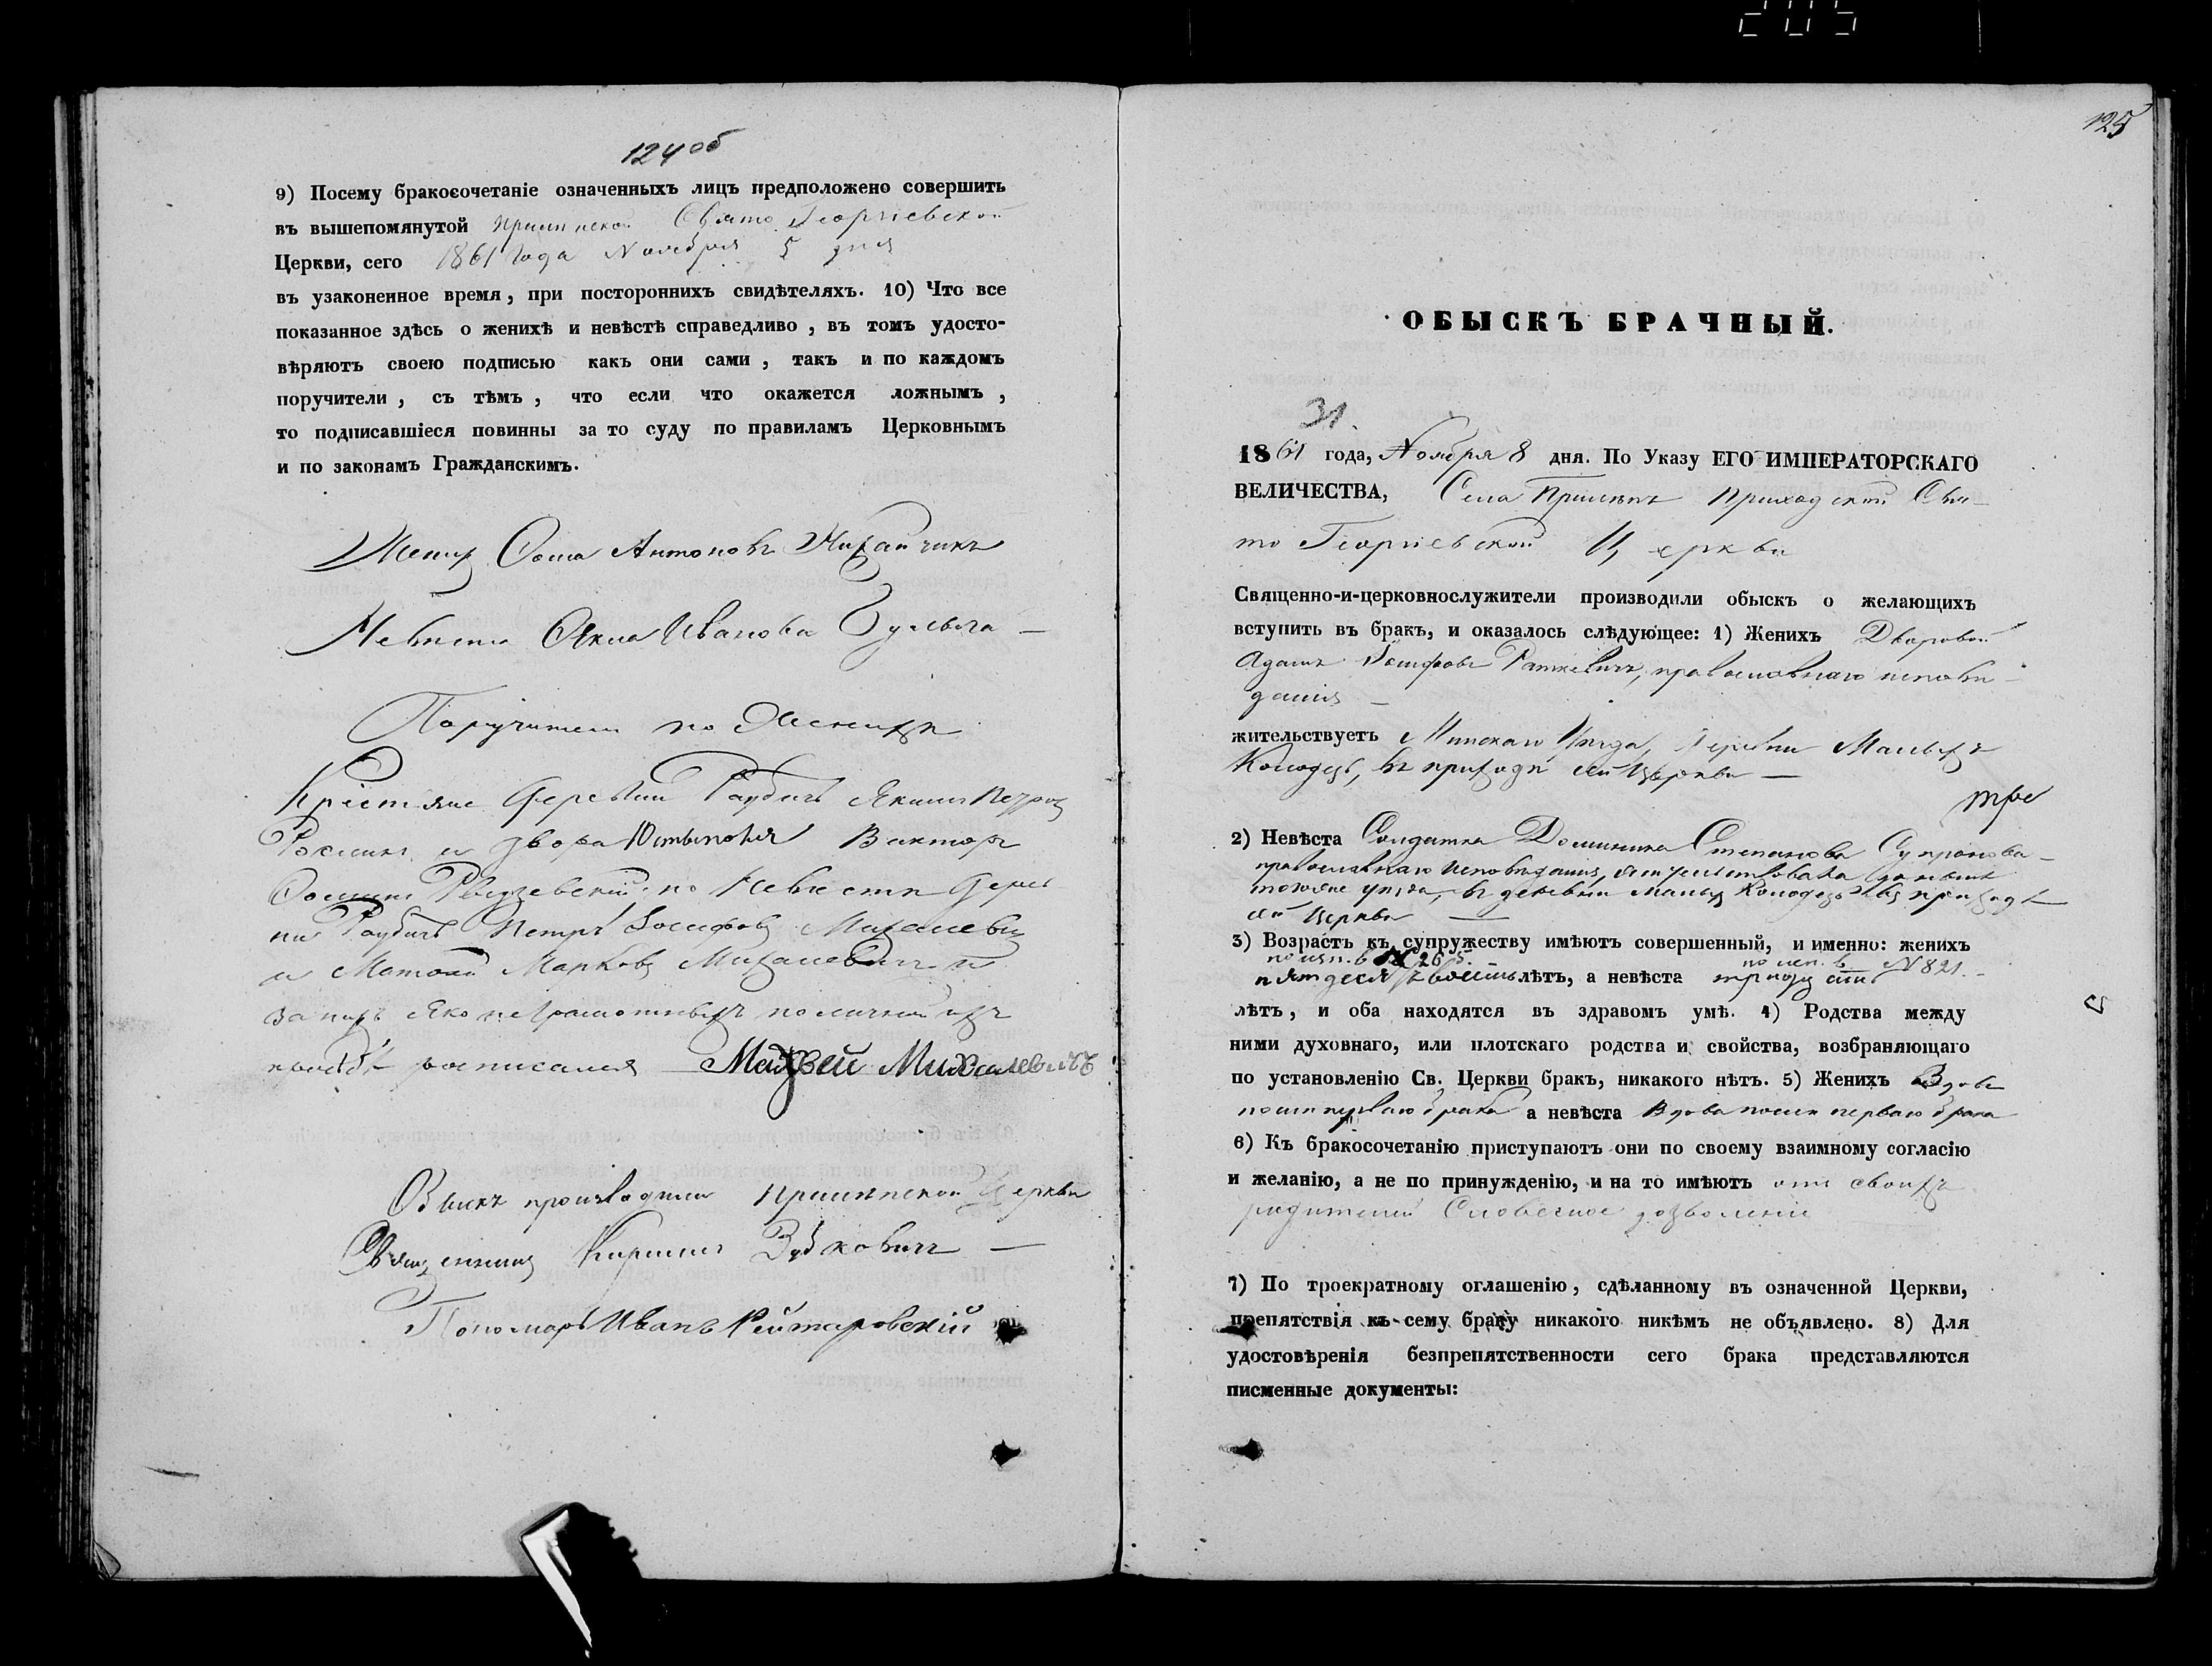 205
124 об
9) Посему бракосочетаніе означенныхъ лицъ предположено совершить
въ вышепомянутой Свято Георгіевской
Церкви, сего 1861 года Ноября 5 дня
въ узаконенное время, при постороннихъ свидѣтеляхъ. 10) Что все
показанное здѣсь о женихѣ и невѣстѣ справедливо, въ томъ удосто-
вѣряютъ своею подписью какъ они сами, такъ и по каждомъ
поручители, съ тѣмъ, что если что окажется ложнымъ,
то подписавшіеся повинны за то суду по правиламъ Церковнымъ
и по законамъ Гражданскимъ.
Женихъ Антоновъ
Невѣста Иванова
Поручители по Женихѣ
Крестяне деревни Якимъ
и двора Викторъ
по Невѣстѣ дерев
ни Петръ Іосифовъ Михалевичъ
и Матвей Марковъ Михалевичъ и
за нихъ яко неграмотныхъ по личной ихъ
прозбѣ росписался Матвей Михалевичъ
Обыскъ производили Церкви
Священникъ Кириллъ
Пономарь Иванъ
125
ОБЫСКЪ БРАЧНЫЙ.
31.
1861 года, Ноября 8 дня. По Указу ЕГО ИМПЕРАТОРСКАГО
ВЕЛИЧЕСТВА, Села Прилепъ приходской Свя-
то Георгіевской Церкви
Священно-и-церковнослужители производили обыскъ о желающихъ
вступить въ бракъ, и оказалось слѣдующее: 1) Женихъ Дворовой
Адамъ Іосифовъ Раткевичъ, православнаго исповѣ-
данія
жительствуетъ Минскаго Уѣзда, Деревни Малыхъ
Колодезь, въ приходѣ сей Церкви
2) Невѣста Солдатка Доминика Степанова Супронова
православнаго исповѣданія, жительствовала
тогоже уѣзда, въ деревни Малыхъ Колодезь въ приходѣ
сей Церкви
3) Возрастъ къ супружеству имѣютъ совершенный, и именно: женихъ
по исп. в № 265. по исп. в № 821.
пятдесятъ восемь лѣтъ, а невѣста тридцати
лѣтъ, и оба находятся въ здравомъ умѣ. 4) Родства между
ними духовнаго, или плотскаго родства и свойства, возбраняющаго
по установленію Св. Церкви бракъ, никакого нѣтъ. 5) Женихъ Вдовъ
после перваго брака а невѣста Вдова после перваго брака
6) Къ бракосочетанію приступаютъ они по своему взаимному согласію
и желанію, а не по принужденію, и на то имѣютъ отъ своихъ
родителей Словесное дозволеніе
7) По троекратному оглашенію, сдѣланному въ означенной Церкви,
препятствія къ сему браку никакого никѣмъ не объявлено. 8) Для
удостовѣренія безпрепятственности сего брака представляются
писменные документы: